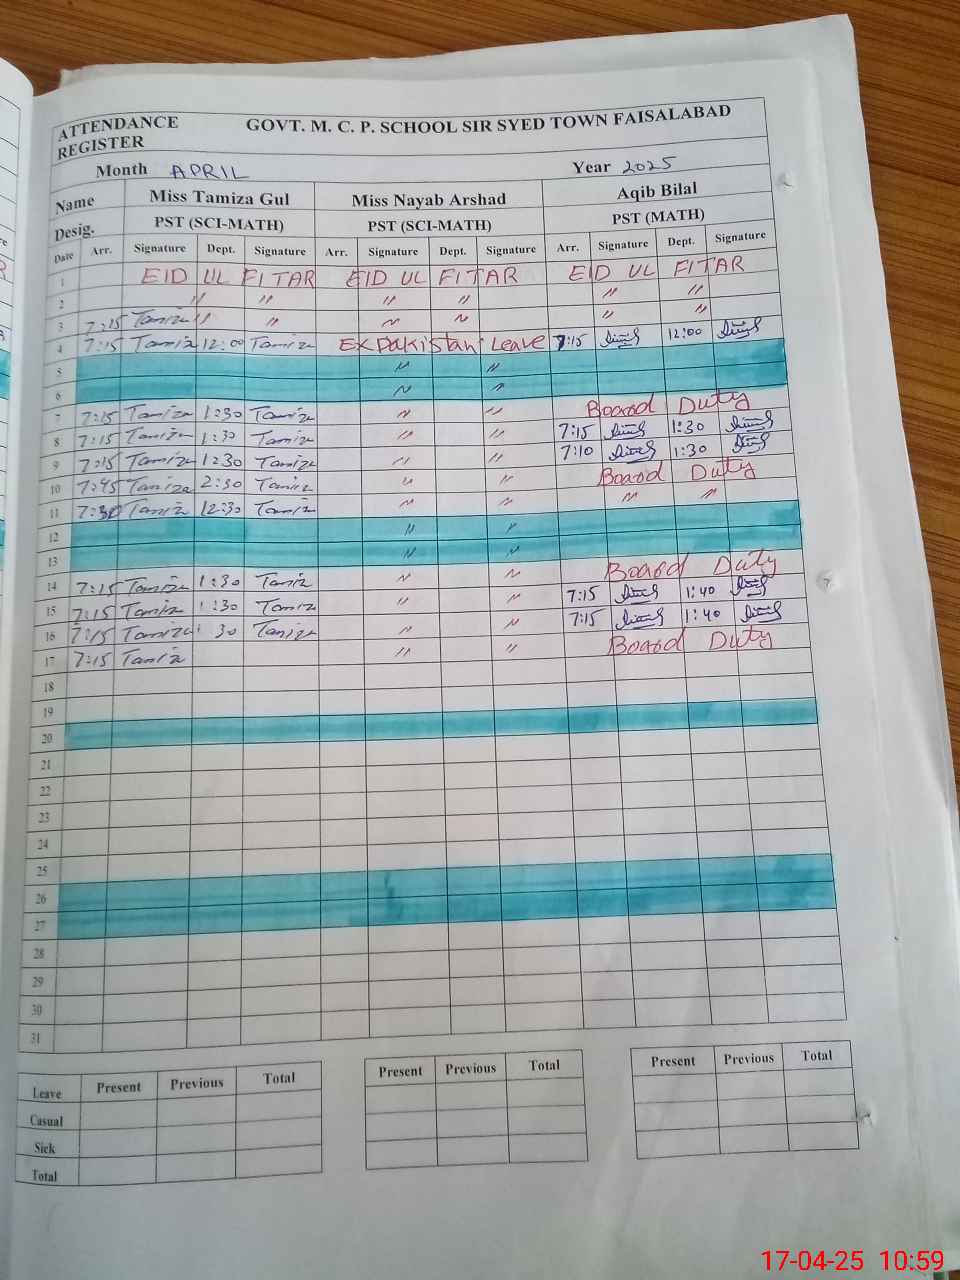 ATTENDANCE REGISTER GOVT. M. C. P. SCHOOL SIR SYED TOWN FAISALABAD
Month APRIL Year 2025
Name Miss Tamiza Gul Miss Nayab Arshad Aqib Bilal
Desig. PST (SCI-MATH) PST (SCI-MATH) PST (MATH)
Date Arr. Signature Dept. Signature Arr. Signature Dept. Signature Arr. Signature Dept. Signature
1 EID UL FITAR EID UL FITAR EID UL FITAR
2 〃 〃 〃 〃 〃 〃
3 7:15 Tamiza 〃 〃 〃 〃 〃 〃
4 7:15 Tamiza 12:00 Tamiza Ex Pakistan Leave 7:15 12:00
5 〃 〃
6 〃 〃
7 7:15 Tamiza 1:30 Tamiza 〃 〃 Board Duty
8 7:15 Tamiza 1:30 Tamiza 〃 〃 7:15 1:30
9 7:15 Tamiza 1:30 Tamiza 〃 〃 7:10 1:30
10 7:45 Tamiza 2:30 Tamiza 〃 〃 Board Duty
11 7:30 Tamiza 12:30 Tamiza 〃 〃 〃 〃
12 〃 〃
13 〃 〃
14 7:15 Tamiza 1:30 Tamiza 〃 〃 Board Duty
15 7:15 Tamiza 1:30 Tamiza 〃 〃 7:15 1:40
16 7:15 Tamiza 1 30 Tamiza 〃 〃 7:15 1:40
17 7:15 Tamiza 〃 〃 Board Duty
18
19
20
21
22
23
24
25
26
27
28
29
30
31
Leave Present Previous Total Present Previous Total Present Previous Total
Casual
Sick
Total
17-04-25 10:59